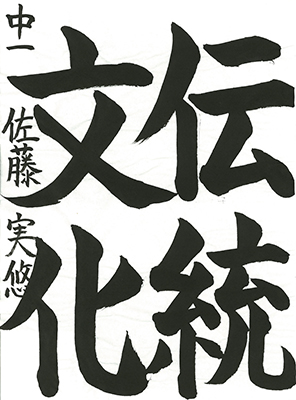 伝統
文化
中一 佐藤 実悠